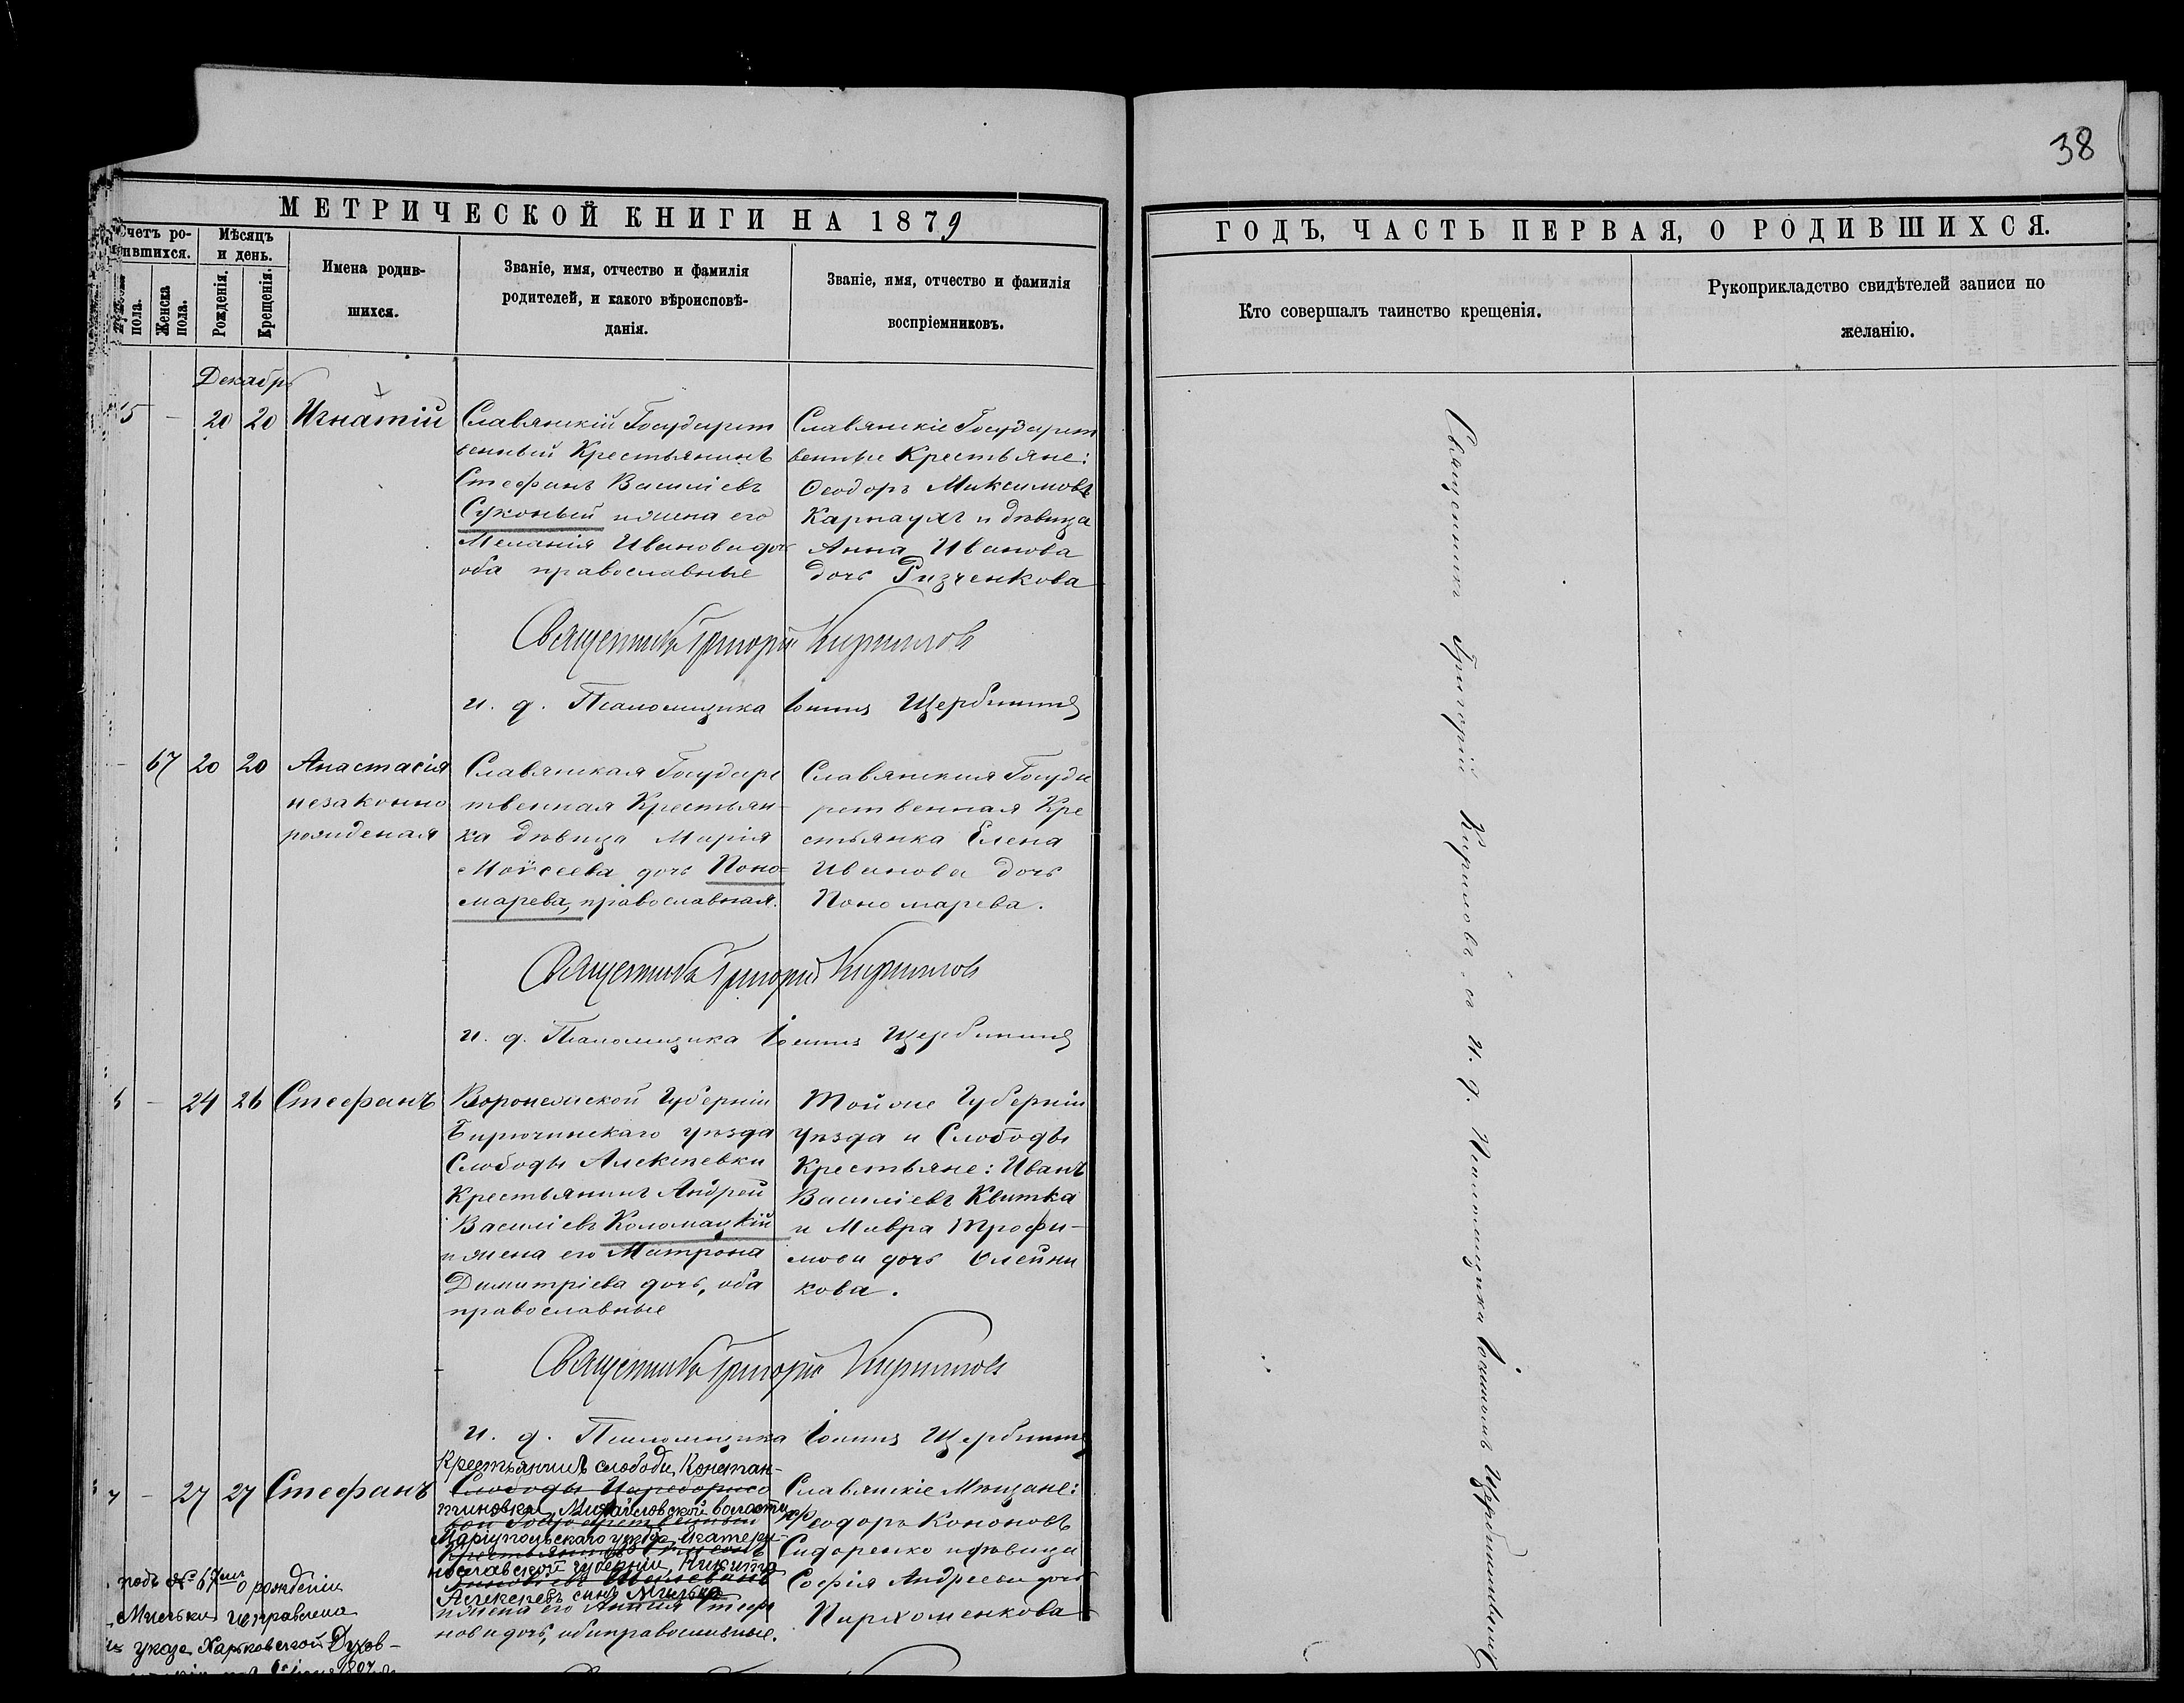 38
МЕТРИЧЕСКОЙ КНИГИ НА 1879
ГОДЪ, ЧАСТЬ ПЕРВАЯ, О РОДИВШИХСЯ.
Счетъ ро-
ившихся.
пола.
Женска
пола.
Мѣсяцъ
и день.
Рожденія.
Крещенія.
Имена родив-
шихся.
Званіе, имя, отчество и фамилія
родителей, и какого вѣроисповѣ-
данія.
Званіе, имя, отчество и фамилія
воспріемниковъ.
Кто совершалъ таинство крещенія.
Рукоприкладство свидѣтелей записи по
желанію.
Декабрь
5 – 20 20 Игнатій
Славянскій Государст
венный Крестьянинъ
Стефанъ Василіевъ
Суконый и жена его
Меланія Иванова доч
оба православные
Славянскіе Государст
венные Крестьяне:
Ѳеодоръ Максимовъ
Карнаухъ и дѣвица
Анна Иванова
дочь Ризченкова
Священникъ Григорій Кириловъ
и. д. Псаломщика Іоаннъ Щербининъ
– 67 20 20 Анастасія
незаконно
рожденая
Славянская Государс
твенная Крестьян-
ка дѣвица Марія
Моѵсеева дочь Поно-
марева, православная.
Славянская Госуда
рственная Кре
стьянка Елена
Иванова дочь
Пономарева.
Священникъ Григорій Кириловъ
и. д. Псаломщика Іоаннъ Щербининъ
– 24 26 Стефанъ
Воронежской Губерніи
Бирючинскаго уѣзда
Слободы Алексѣевки
Крестьянинъ Андрей
Василіевъ Коломацкій
и жена его Матрона
Димитріева дочь, оба
православные
Той же Губерніи
уѣзда и Слободы
Крестьяне: Иванъ
Василіевъ Квитка
и Мавра Трофи-
мова дочь Олейни
кова.
Священникъ Григорій Кириловъ
и. д. Псаломщика Іоаннъ Щербининъ
7 – 27 27 Стефанъ
Крестьянинъ слободы Констан-
Слободы Цареборисо
тиновки, Михайловской волости
Маріупольскаго уѣзда, Екатери-
нославской губерніи, Никита
Алексѣевъ сынъ Мисько
и жена его Стефа
нова дочь, оба православные.
Славянскіе Мѣщане:
Ѳеодоръ Кононовъ
Сидоренко и дѣвица
Софія Андреева дочь
Пархоменкова
подъ № 67мъ о рожденіи
Мисько исправлена
указа Харьковской Духов-
Священникъ Григорій Кириловъ съ и. д. Псаломщика Іоанномъ Щербининымъ